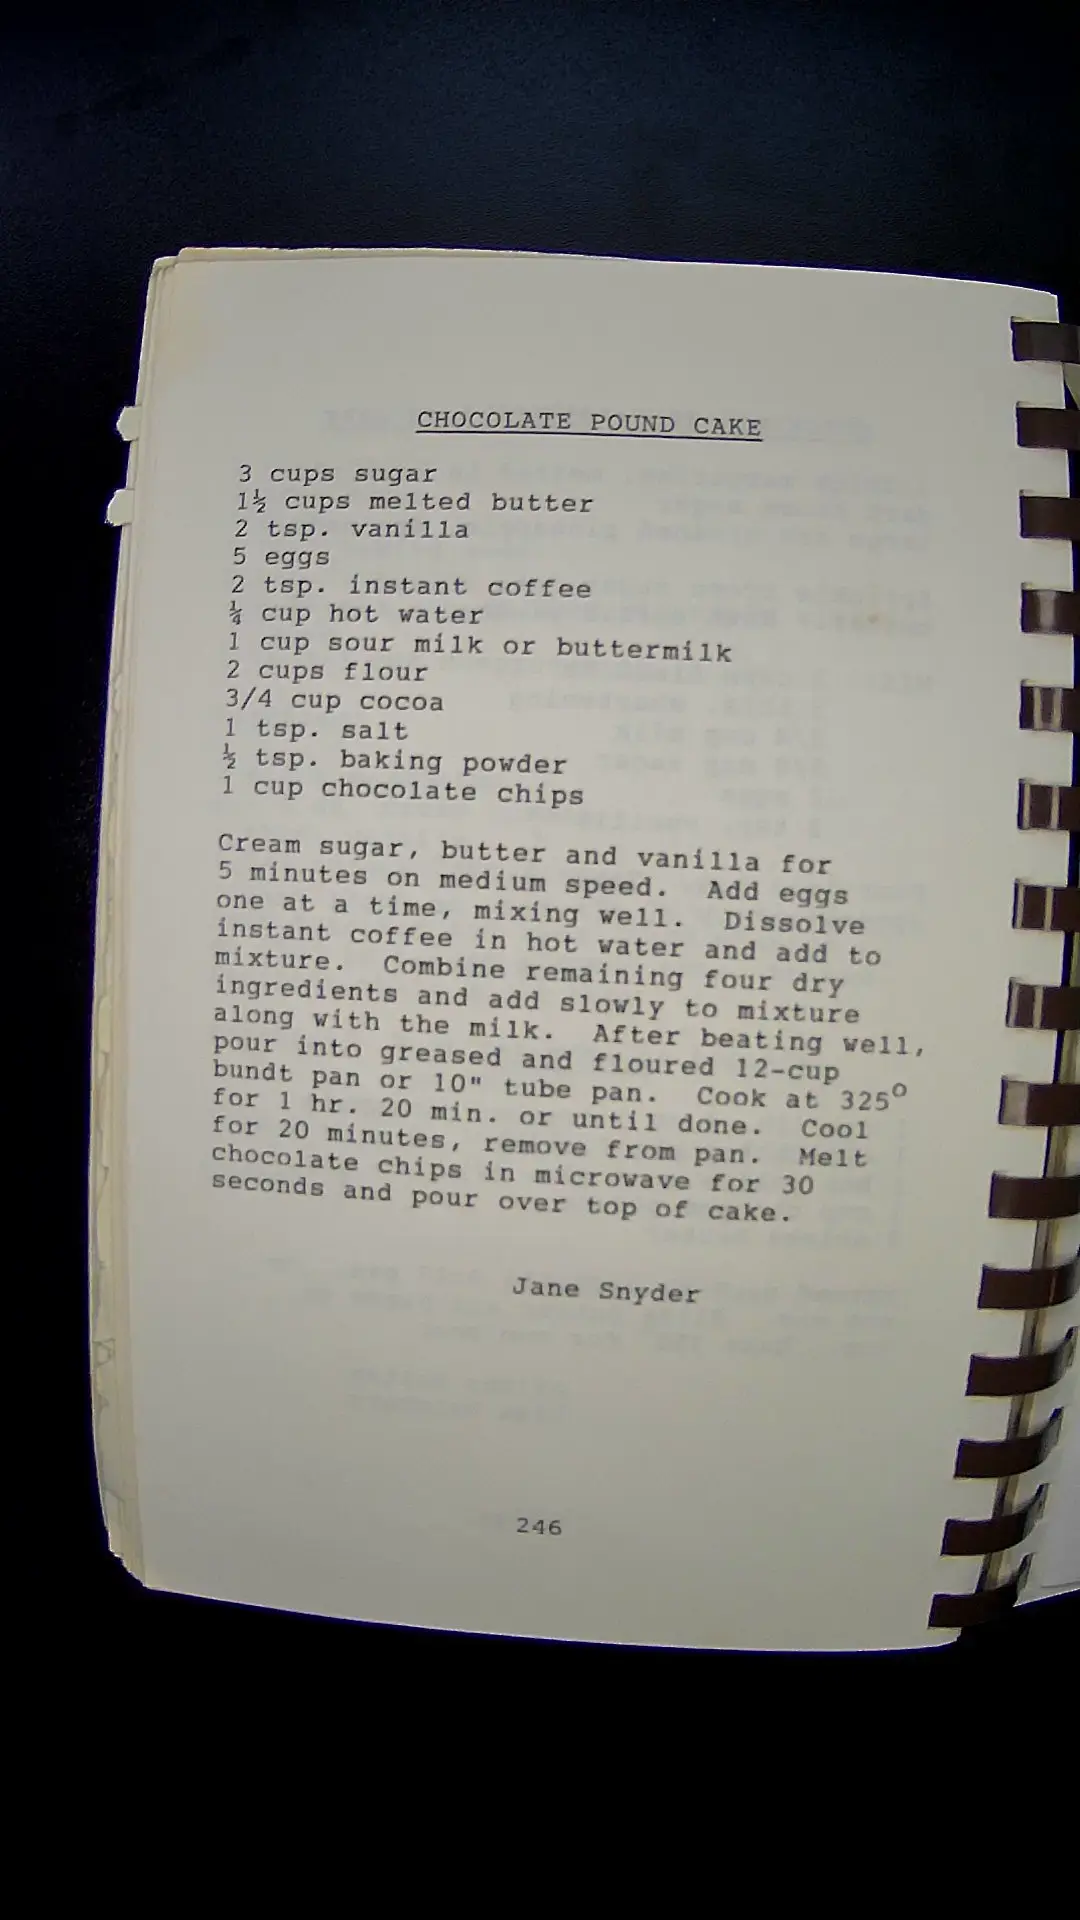 CHOCOLATE POUND CAKE
3 cups sugar
1½ cups melted butter
2 tsp. vanilla
5 eggs
2 tsp. instant coffee
¼ cup hot water
1 cup sour milk or buttermilk
2 cups flour
3/4 cup cocoa
1 tsp. salt
½ tsp. baking powder
1 cup chocolate chips
Cream sugar, butter and vanilla for
5 minutes on medium speed. Add eggs
one at a time, mixing well. Dissolve
instant coffee in hot water and add to
mixture. Combine remaining four dry
ingredients and add slowly to mixture
along with the milk. After beating well,
pour into greased and floured 12-cup
bundt pan or 10" tube pan. Cook at 325°
for 1 hr. 20 min. or until done. Cool
for 20 minutes, remove from pan. Melt
chocolate chips in microwave for 30
seconds and pour over top of cake.
Jane Snyder
246